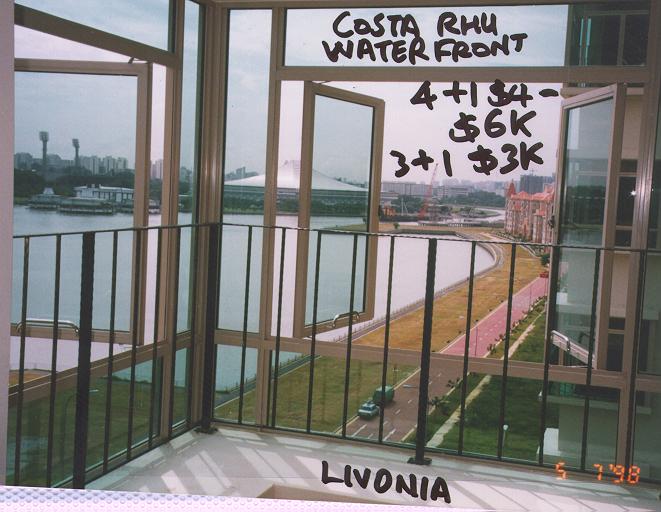 COSTA RHU
WATERFRONT
4+1 $4-
$6K
3+1 $3K
LIVONIA
5 7'98